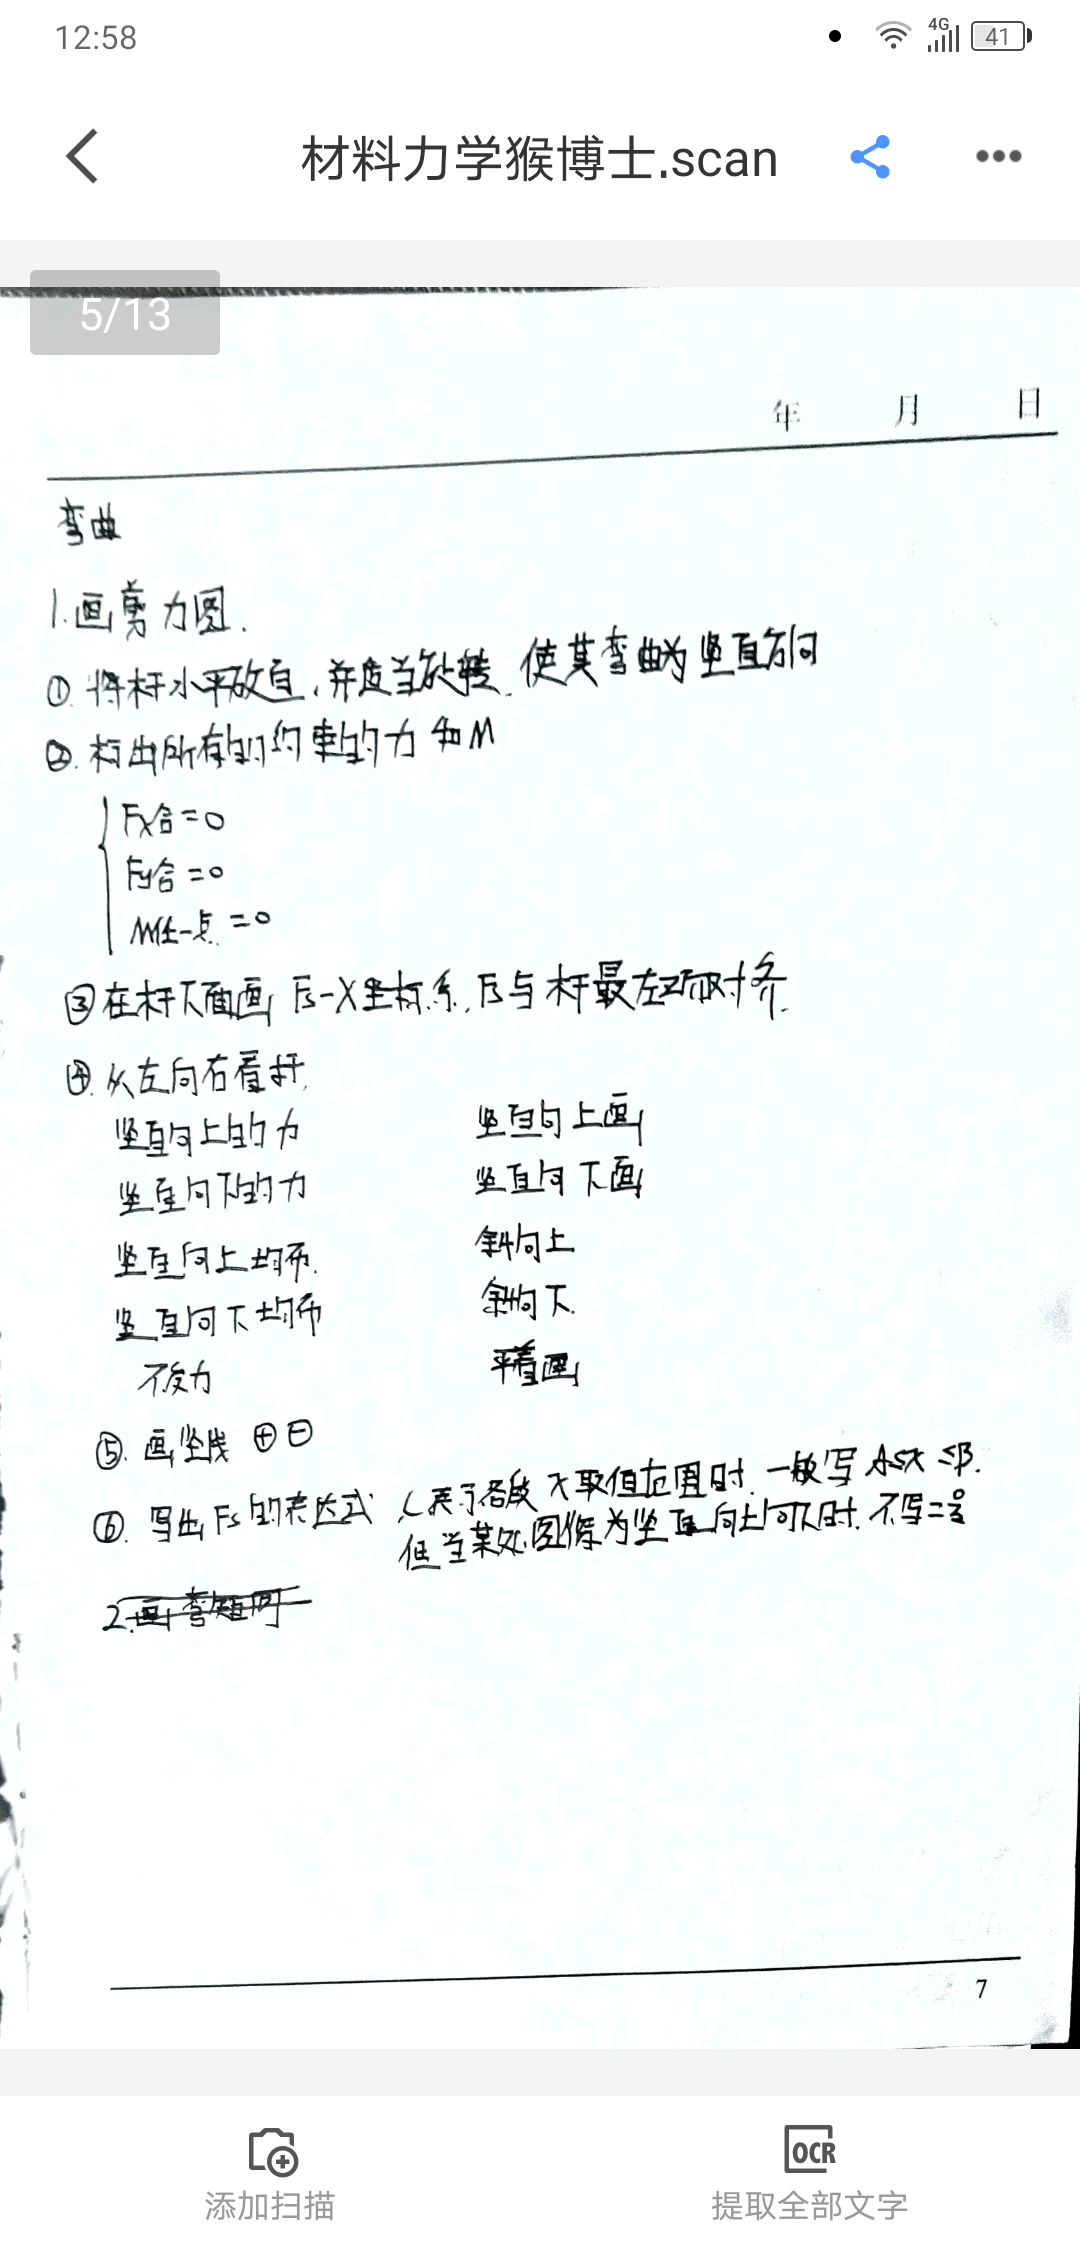 12:58
4G
41
材料力学猴博士.scan
5/13
年 月 日
弯曲
1.画剪力图.
①.将杆水平放置,并适当处转.使其弯曲为坚直方向
②.标出所有的约束的力和M
Fx合=0
Fy合=0
M任一点=0
③在杆下面画 Fs-X坐标系,Fs与杆最左端对齐.
④.从左向右看杆.
坚直向上的力 坚直向上画
坚直向下的力 坚直向下画
坚直向上均布. 斜向上
坚直向下均布 斜向下.
不受力 平着画
⑤.画竖线 ⊕⊖
⑥.写出Fs的表达式 (表示各段x取值范围时.一般写A≤x≤B.
但当某处图像为坚直向上向下时.不写=号
2.画弯矩图
7
添加扫描
OCR
提取全部文字